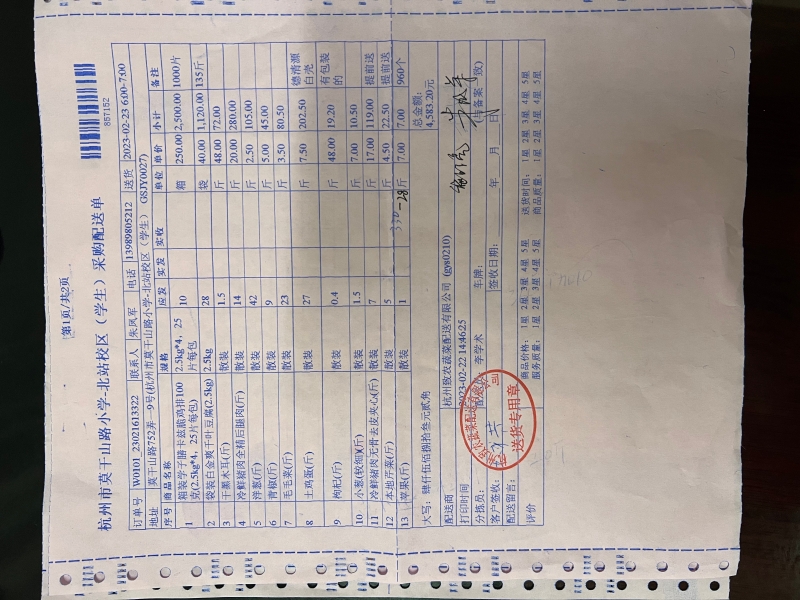 第1页/共2页
857152
杭州市莫干山路小学-北站校区（学生）采购配送单
订单号 W0101_23021613322 联系人 朱凤军 电话 13989805212 送货 2023-02-23 6:00-7:00
地址 莫干山路752弄—9号(杭州市莫干山路小学-北站校区（学生）GSJY0027)
序号 商品名称 规格 应发 实发 实收 单位 单价 小计 备注
1 箱装学子膳卡兹脆鸡排100克(2.5kg*4，25片每包) 2.5kg*4，25片每包 10 箱 250.00 2,500.00 1000片
2 袋装白金爽千叶豆腐(2.5kg) 2.5kg 28 袋 40.00 1,120.00 135斤
3 干黑木耳(斤) 散装 1.5 斤 48.00 72.00
4 冷鲜猪肉全精后腿肉(斤) 散装 14 斤 20.00 280.00
5 洋葱(斤) 散装 42 斤 2.50 105.00
6 青椒(斤) 散装 9 斤 5.00 45.00
7 毛毛菜(斤) 散装 23 斤 3.50 80.50
8 土鸡蛋(斤) 散装 27 斤 7.50 202.50 德清源白壳
9 枸杞(斤) 散装 0.4 斤 48.00 19.20 有包装的
10 小葱(较细)(斤) 散装 1.5 斤 7.00 10.50
11 冷鲜猪肉无骨去皮夹心(斤) 散装 7 斤 17.00 119.00 提前送
12 本地芹菜(斤) 散装 5 斤 4.50 22.50 提前送
13 苹果(斤) 散装 1 斤 7.00 7.00 960个
大写: 肆仟伍佰捌拾叁元贰角 总金额: 4,583.20元
配送商 杭州致农蔬菜配送有限公司 (gys0210)
打印时间 2023-02-22 14:46:25
分拣员: 配送员: 李学术 车牌: (与备案一致)
客户签收: 签收日期: 年 月 日
配送留言:
评价 商品价格: 1星 2星 3星 4星 5星 送货时间: 1星 2星 3星 4星 5星
服务质量: 1星 2星 3星 4星 5星 商品质量: 1星 2星 3星 4星 5星
送货专用章